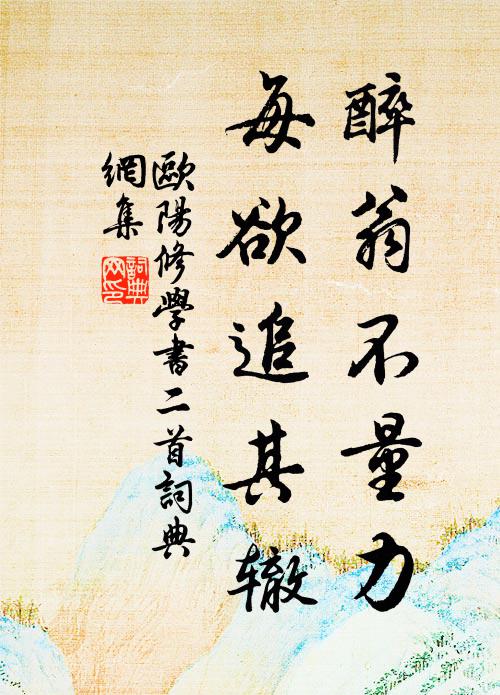 醉翁不量力
每欲追其辙
歐陽修學書二首詞典
網集
詞典
网印